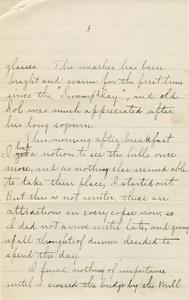 3
glasses. The weather has been
bright and warm for the first time
since the "and old
Sol was much appreciated after
his long sojourn.
This morning after breakfast
I got a notion to see the hills once
more, and as nothing else seemed able
to take their place, I started out.
But this is not winter, there are
attractions in every copse now, so
I did not arrive until late, and giving
up all thoughts of dinner decided to
spend the day.
I found nothing of importance
until I crossed the bridge by the Mill